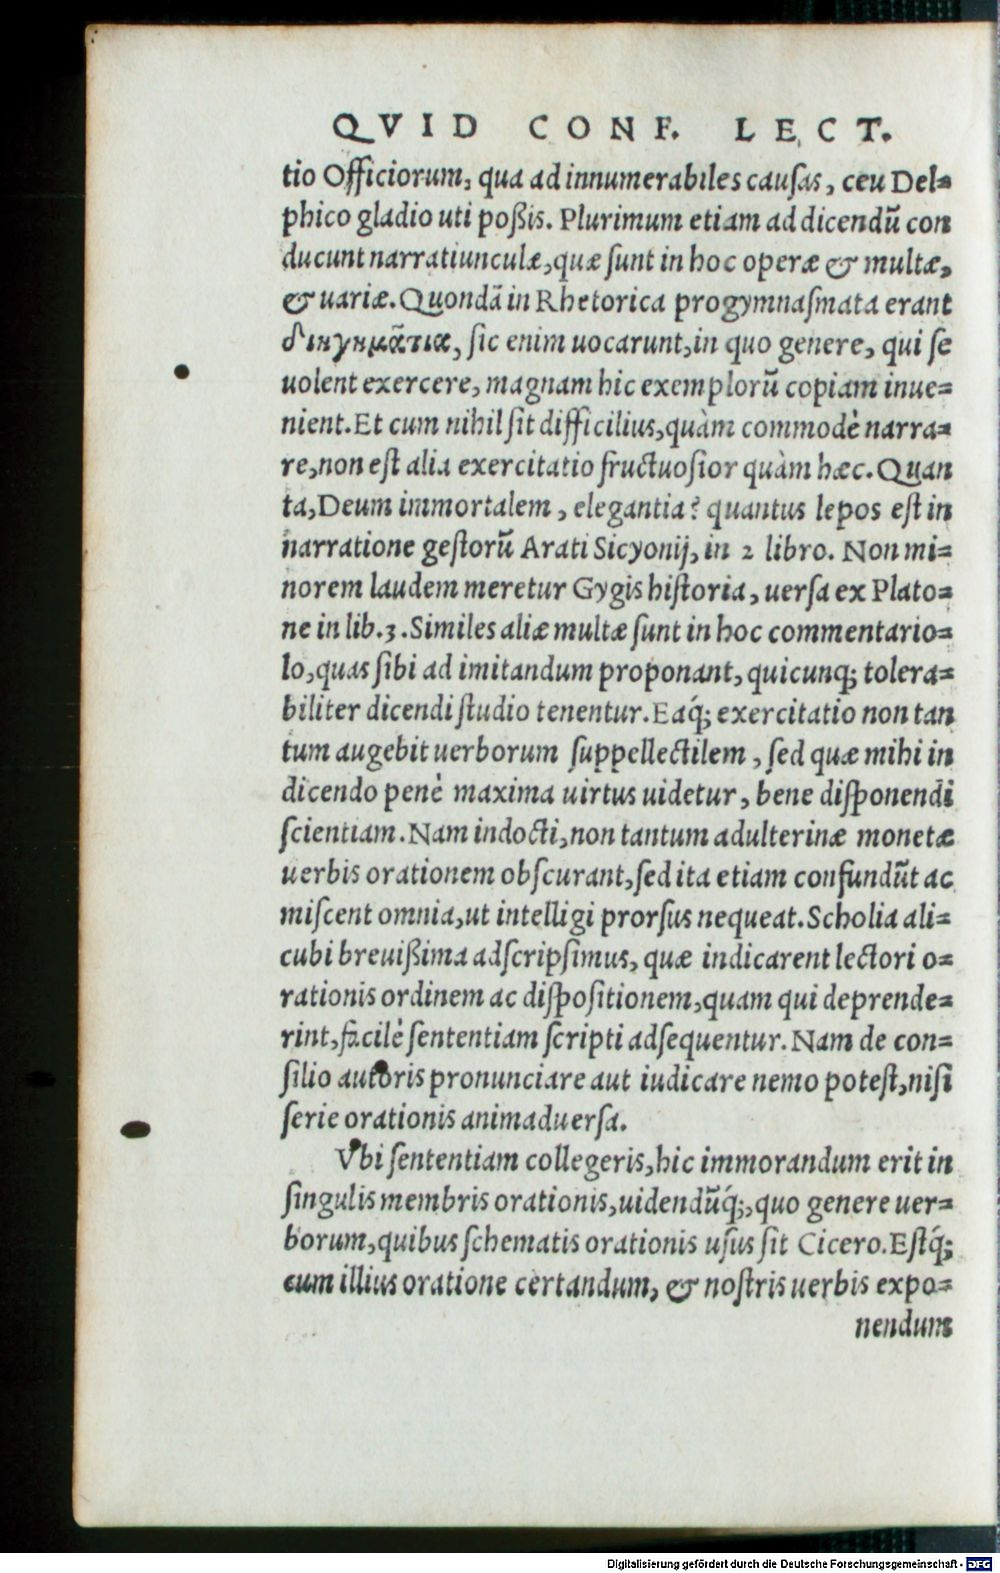 QVID CONF. LECT.
tio Officiorum, qua ad innumerabiles cauſas, ceu Del=
phico gladio uti poßis. Plurimum etiam ad dicendū con
ducunt narratiunculæ, quæ ſunt in hoc operæ & multæ,
& uariæ. Quondā in Rhetorica progymnaſmata erant
διηγημᾶτια, ſic enim uocarunt, in quo genere, qui ſe
uolent exercere, magnam hic exemplorū copiam inue=
nient. Et cum nihil ſit difficilius, quàm commodè narra=
re, non eſt alia exercitatio fructuoſior quàm hæc. Quan
ta, Deum immortalem, elegantia? quantus lepos eſt in
narratione geſtorū Arati Sicyonij, in 2 libro. Non mi=
norem laudem meretur Gygis hiſtoria, uerſa ex Plato=
ne in lib. 3. Similes aliæ multæ ſunt in hoc commentario=
lo, quas ſibi ad imitandum proponant, quicunq; tolera=
biliter dicendi ſtudio tenentur. Eaq́; exercitatio non tan
tum augebit uerborum ſuppellectilem, ſed quæ mihi in
dicendo penè maxima uirtus uidetur, bene diſponendi
ſcientiam. Nam indocti, non tantum adulterinæ monetæ
uerbis orationem obſcurant, ſed ita etiam confundūt ac
miſcent omnia, ut intelligi prorſus nequeat. Scholia ali=
cubi breuißima adſcripſimus, quæ indicarent lectori o=
rationis ordinem ac diſpoſitionem, quam qui deprende=
rint, facilè ſententiam ſcripti adſequentur. Nam de con=
ſilio autoris pronunciare aut iudicare nemo poteſt, niſi
ſerie orationis animaduerſa.
Vbi ſententiam collegeris, hic immorandum erit in
ſingulis membris orationis, uidendūq́;, quo genere uer=
borum, quibus ſchematis orationis uſus ſit Cicero. Eſtq́;
cum illius oratione certandum, & noſtris uerbis expo=
nendum
Digitalisierung gefördert durch die Deutsche Forschungsgemeinschaft - DFG